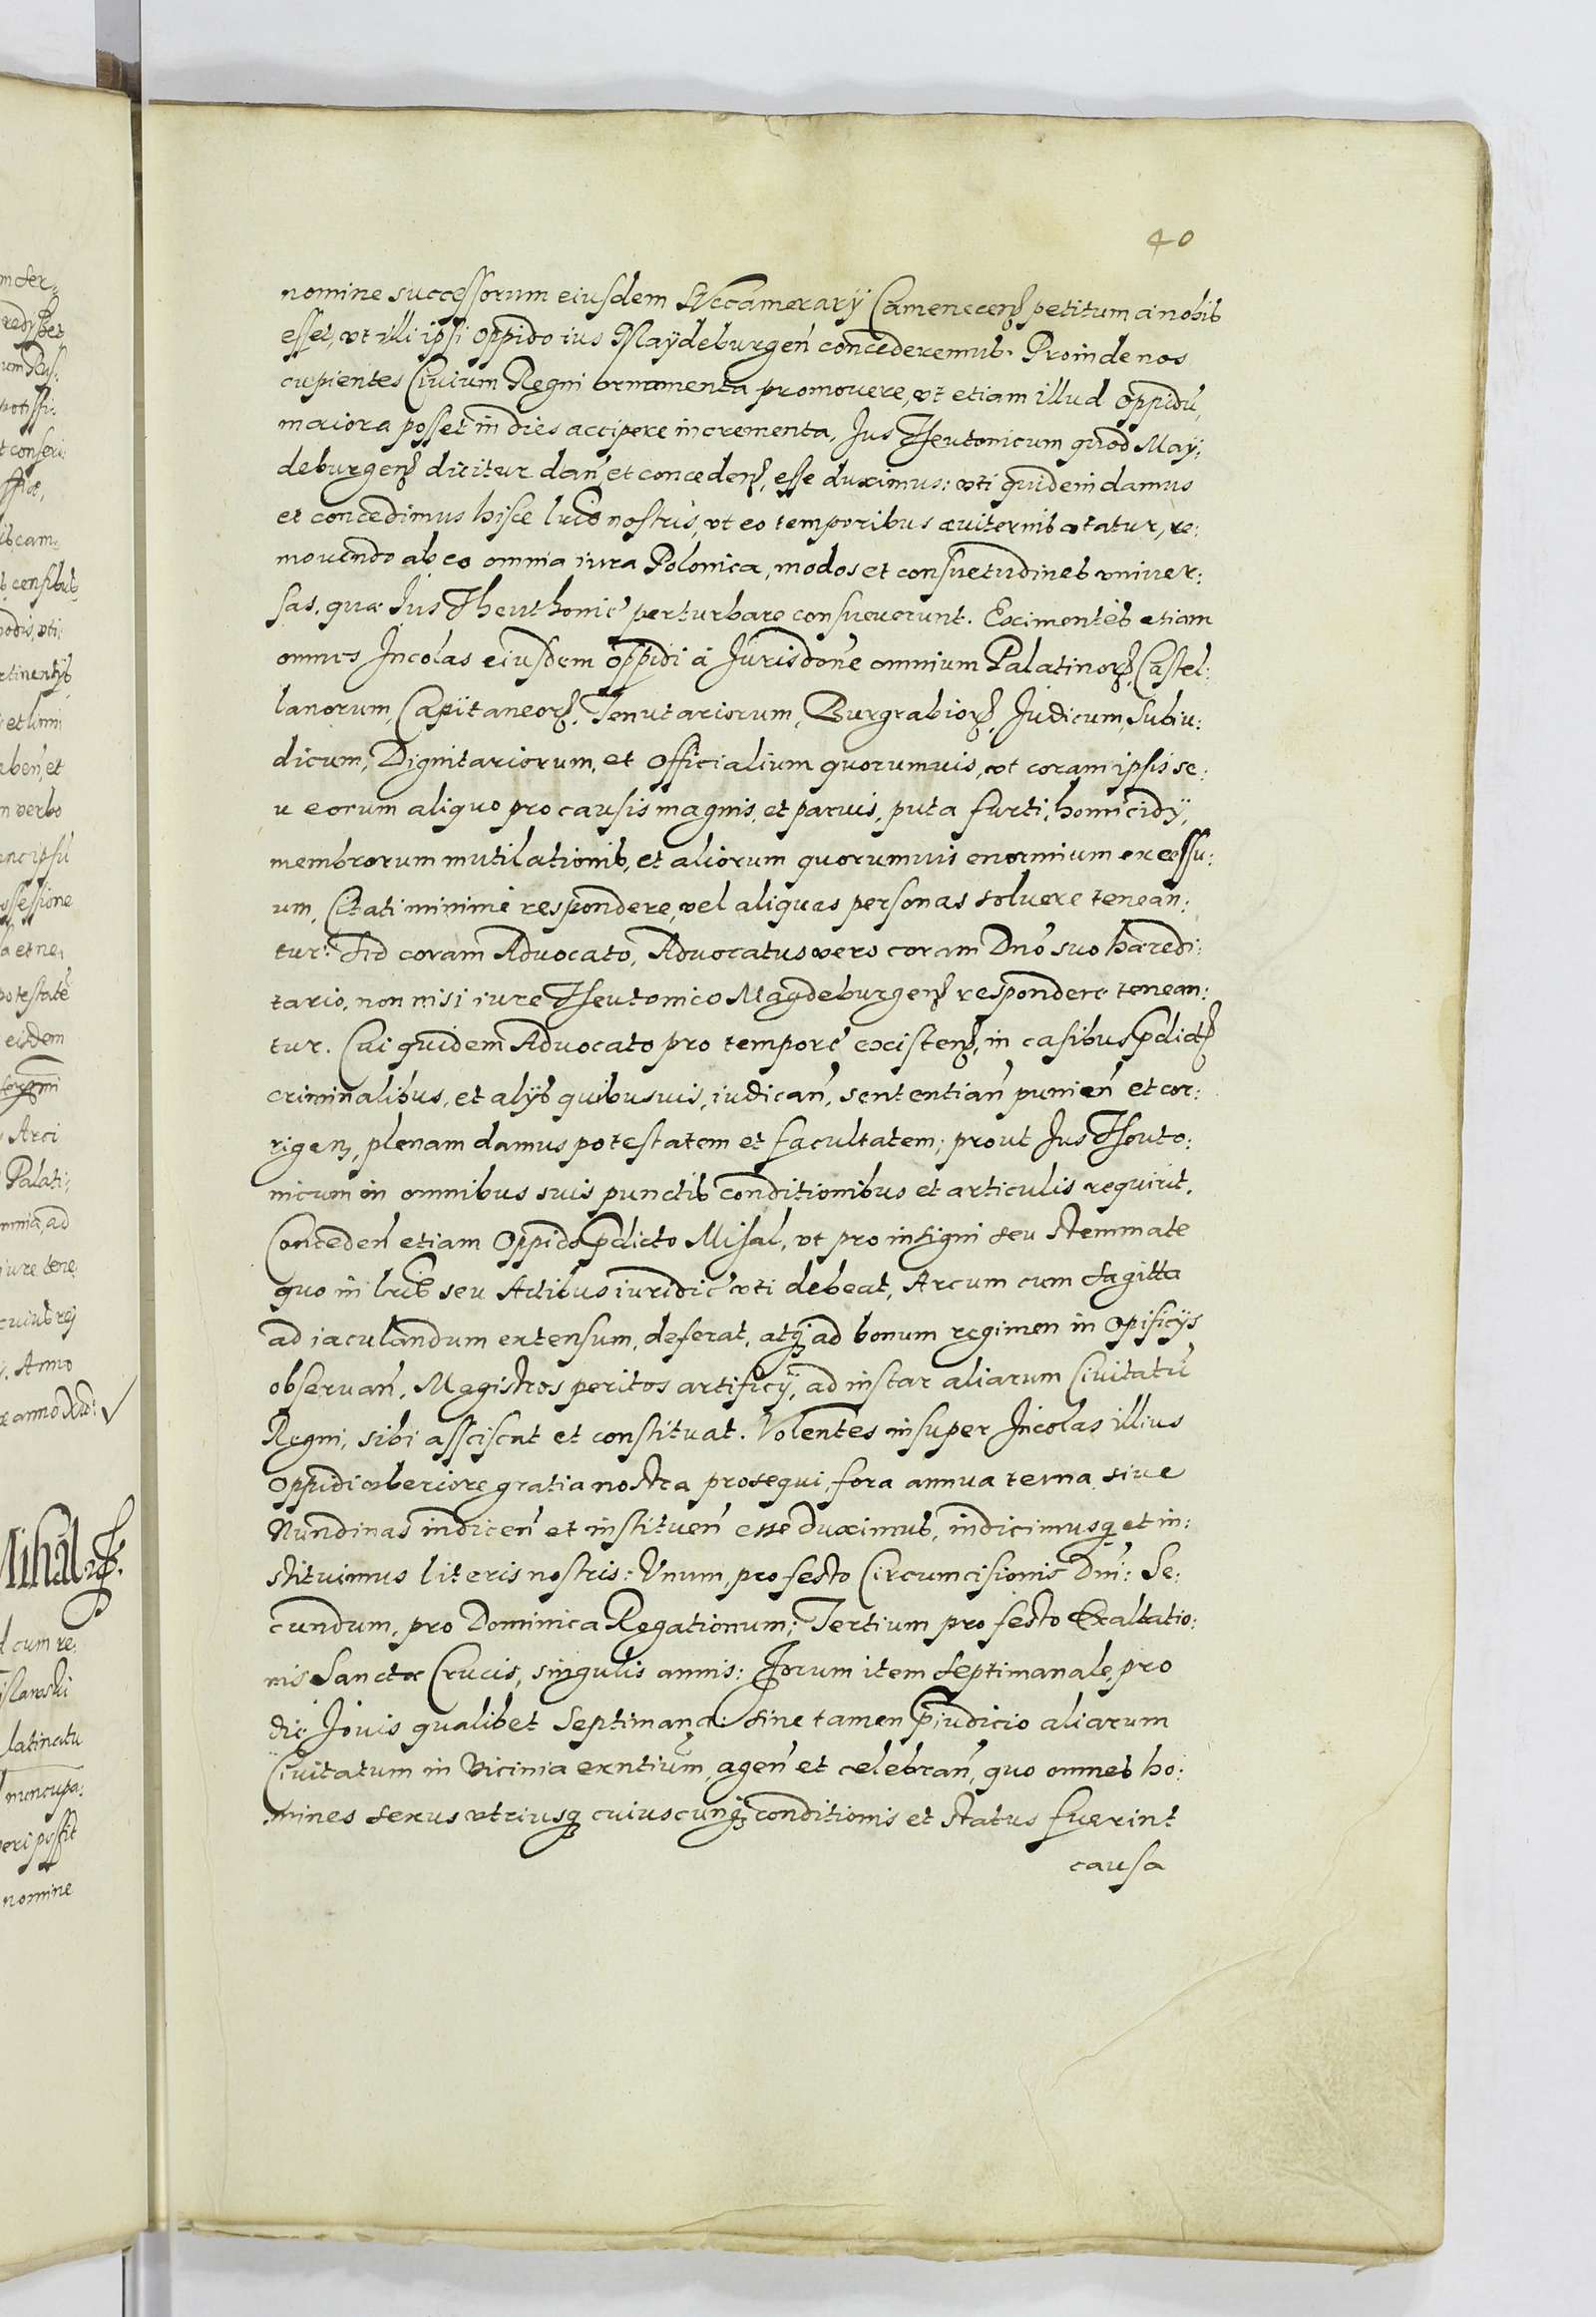 40
nomine successorum eiusdem Succamerarÿ Camenecen petitum a nobis
esset, vt illi ipsi oppido ius Maÿdeburgen concederemus. Proinde nos
cupientes Civium Regni ornamenta promouere, vt etiam illud oppidū,
maiora posset in dies accipere incrementa, Jus Theutonicum quod Maÿ:
deburgen dicitur dan et conceden, esse duximus: vti quidem damus
et concedimus hisce lris nostris, vt eo temporibus æviternis vtatur, re:
movendo ab eo omnia iura Polonica, modos et consvetudines vniver:
sas, quæ Jus Theuthonic perturbare consueverunt. Eximentes etiam
omnes Jncolas eiusdem oppidi à Jurisdone omnium Palatinor, Castel:
lanorum, Capitaneor, Tenutariorum, Burgrabior, Judicum, Subiu:
dicum, Dignitariorum, et Officialium quorumuis, vt coram ipsis se:
u eorum aliquo pro causis magnis, et parvis, puta furti, homicidÿ,
membrorum mutilationis, et aliorum quorumuis enormium excessu:
um, Citati minimè respondere, vel aliquas personas soluere tenean:
tur: Sed coram Advocato, Advocatus vero coram Dno suo hæredi:
tario, non nisi iure Theutonico Magdeburgen respondere tenean:
tur. Cui quidem Advocato pro tempore existen, in casibus pdict
criminalibus, et alÿs quibusuis, iudican, sententian punien et cor:
rigen, plenam damus potestatem et facultatem; prout Jus Theuto:
nicum in omnibus suis punctis conditionibus et articulis requirit.
Conceden etiam Oppido pdicto Mihal, vt pro insigni seu stemmate
quo in lris seu Actibus iuridic vti debeat, Arcum cum sagitta
ad iaculandum extensum, deferat, atq ad bonum regimen in opificÿs
observan, Magistros peritos artificÿ, ad instar aliarum Civitatū
Regni, sibi assciscat et constituat. Volentes insuper Jncolas illius
Oppidi vberiore gratia nostra prosequi, fora annua terna sive
Nundinas indicen et instituen esse duximus, indicimusq et in:
stituimus literis nostris: Vnum, pro festo Circumcisionis Dni: Se:
cundum, pro Dominica Rogationum; Tertium pro festo Exaltatio:
nis Sanctæ Crucis, singulis annis: Forum item septimanale, pro
die Jovis qualibet Septimana: sine tamen piudicio aliarum
Civitatum in vicinia exntium, agen et celebran, quo omnes ho:
mines sexus vtriusq cuiuscunq conditionis et status fuerint
causa